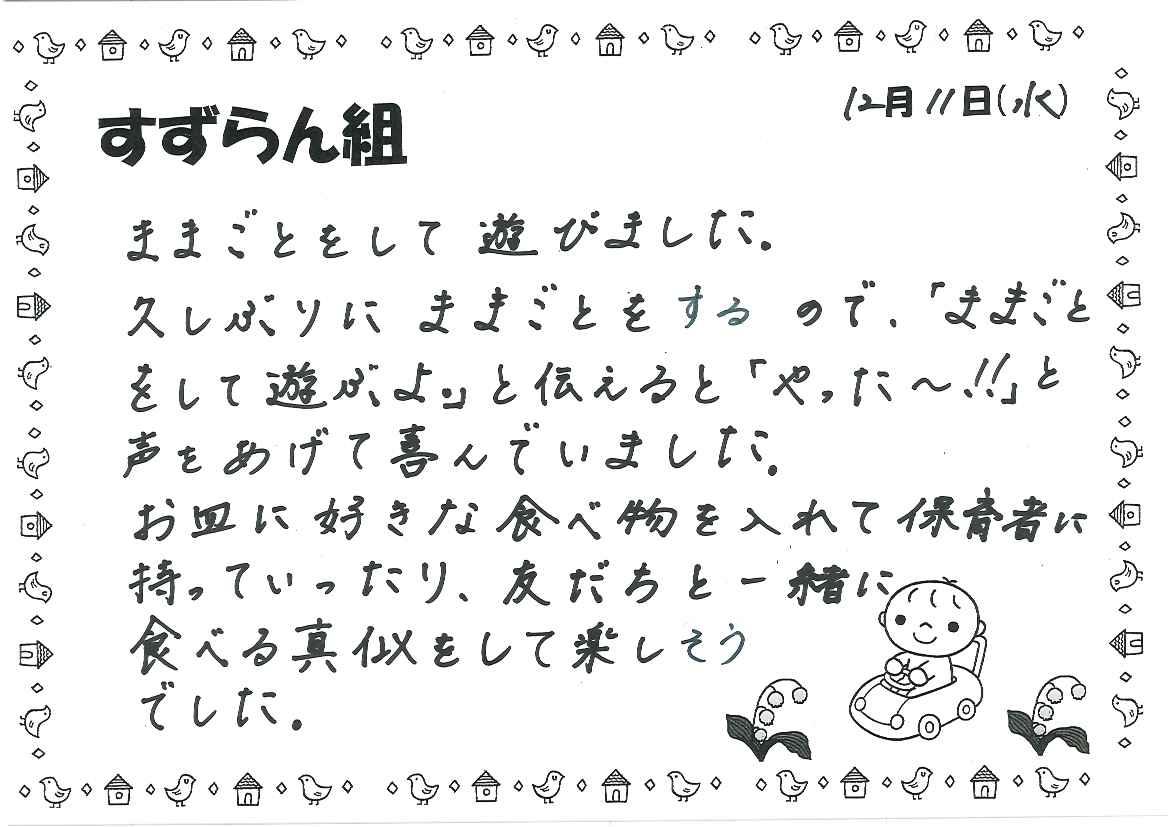 12月11日(水)
すずらん組
ままごとをして遊びました。
久しぶりにままごとをするので、「ままごと
をして遊ぶよ。」と伝えると「やった～!!」と
声をあげて喜んでいました。
お皿に好きな食べ物を入れて保育者に
持っていったり、友だちと一緒に
食べる真似をして楽しそう
でした。